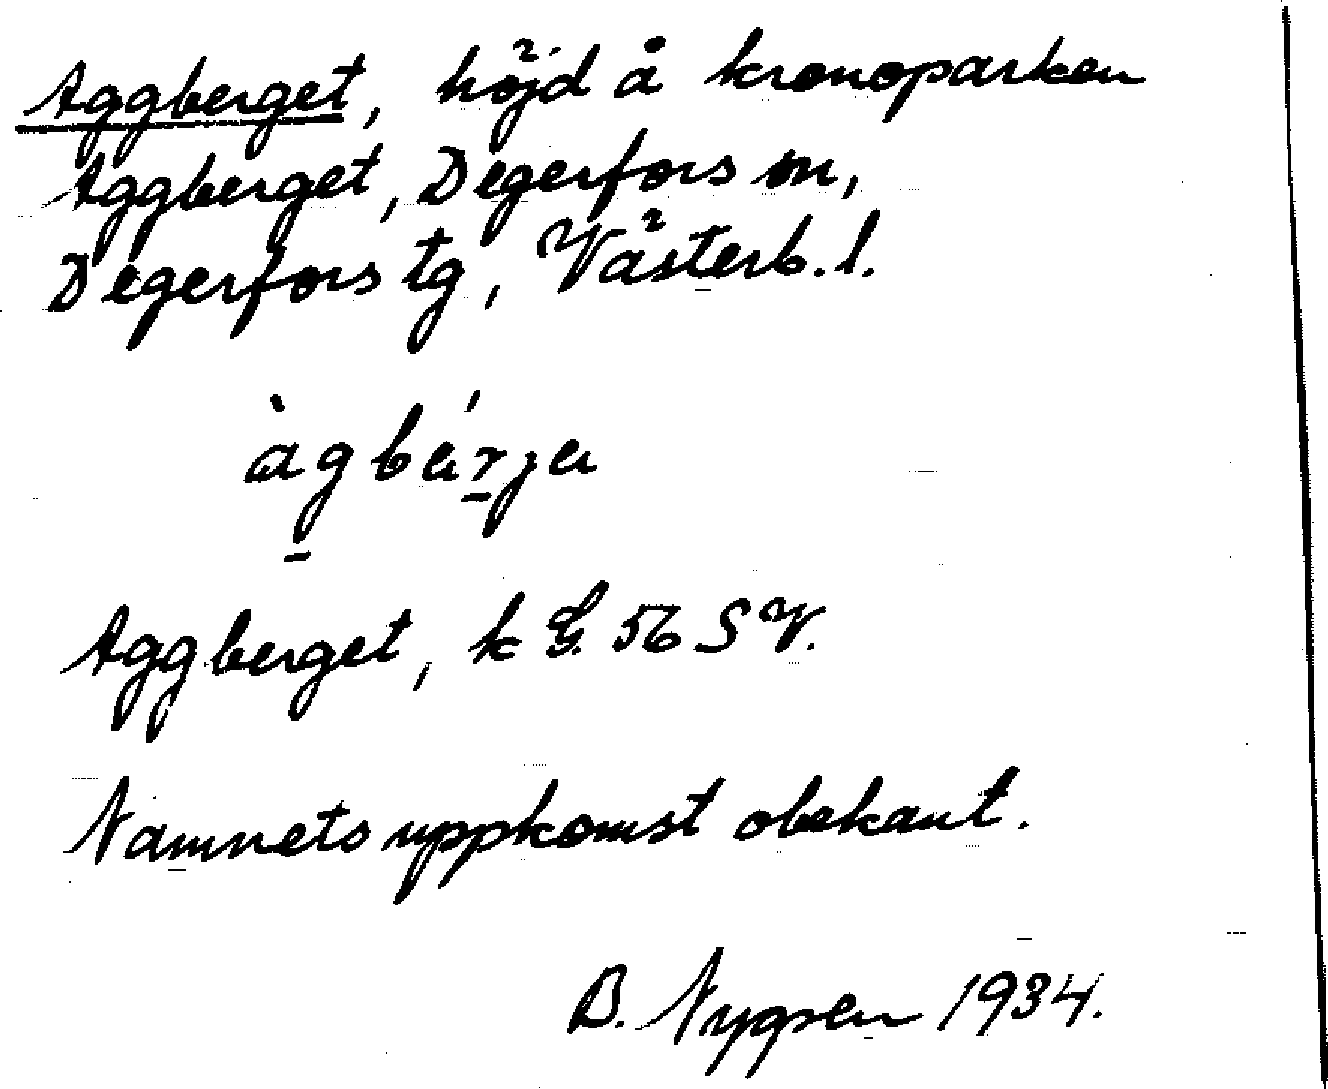 Aggberget, höjd å kronoparken
Aggberget, Degerfors sn,
Degerfors tg, Västerb. l.
àgbárja
Aggberget, k G. 56 SV.
Namnets uppkomst obekant.
B. Nygren 1934.